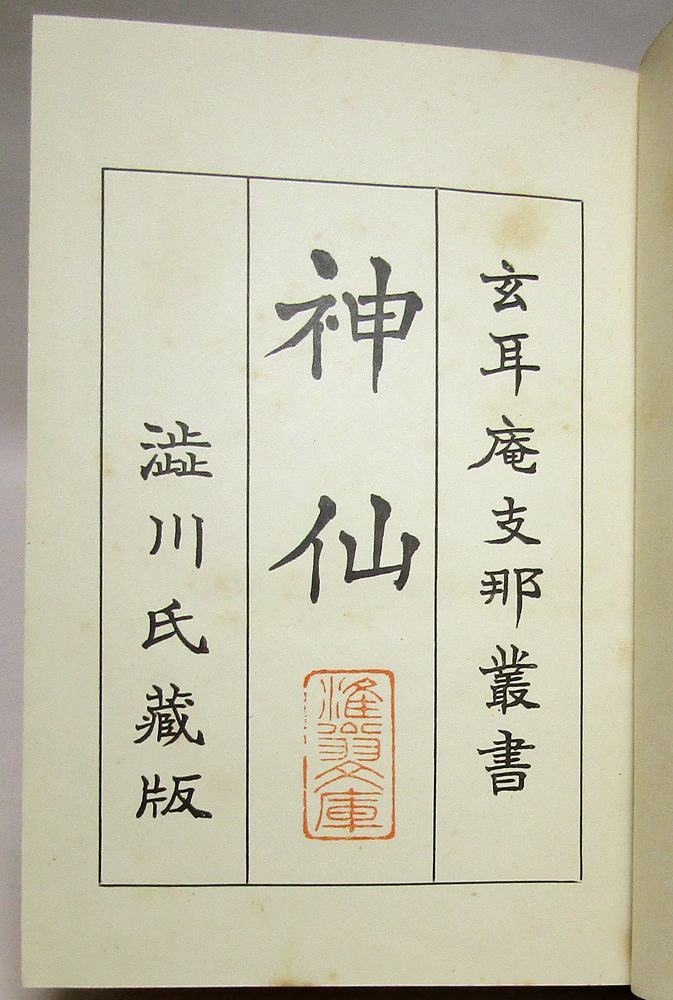 玄耳庵支那叢書
神仙
文庫
澁川氏藏版